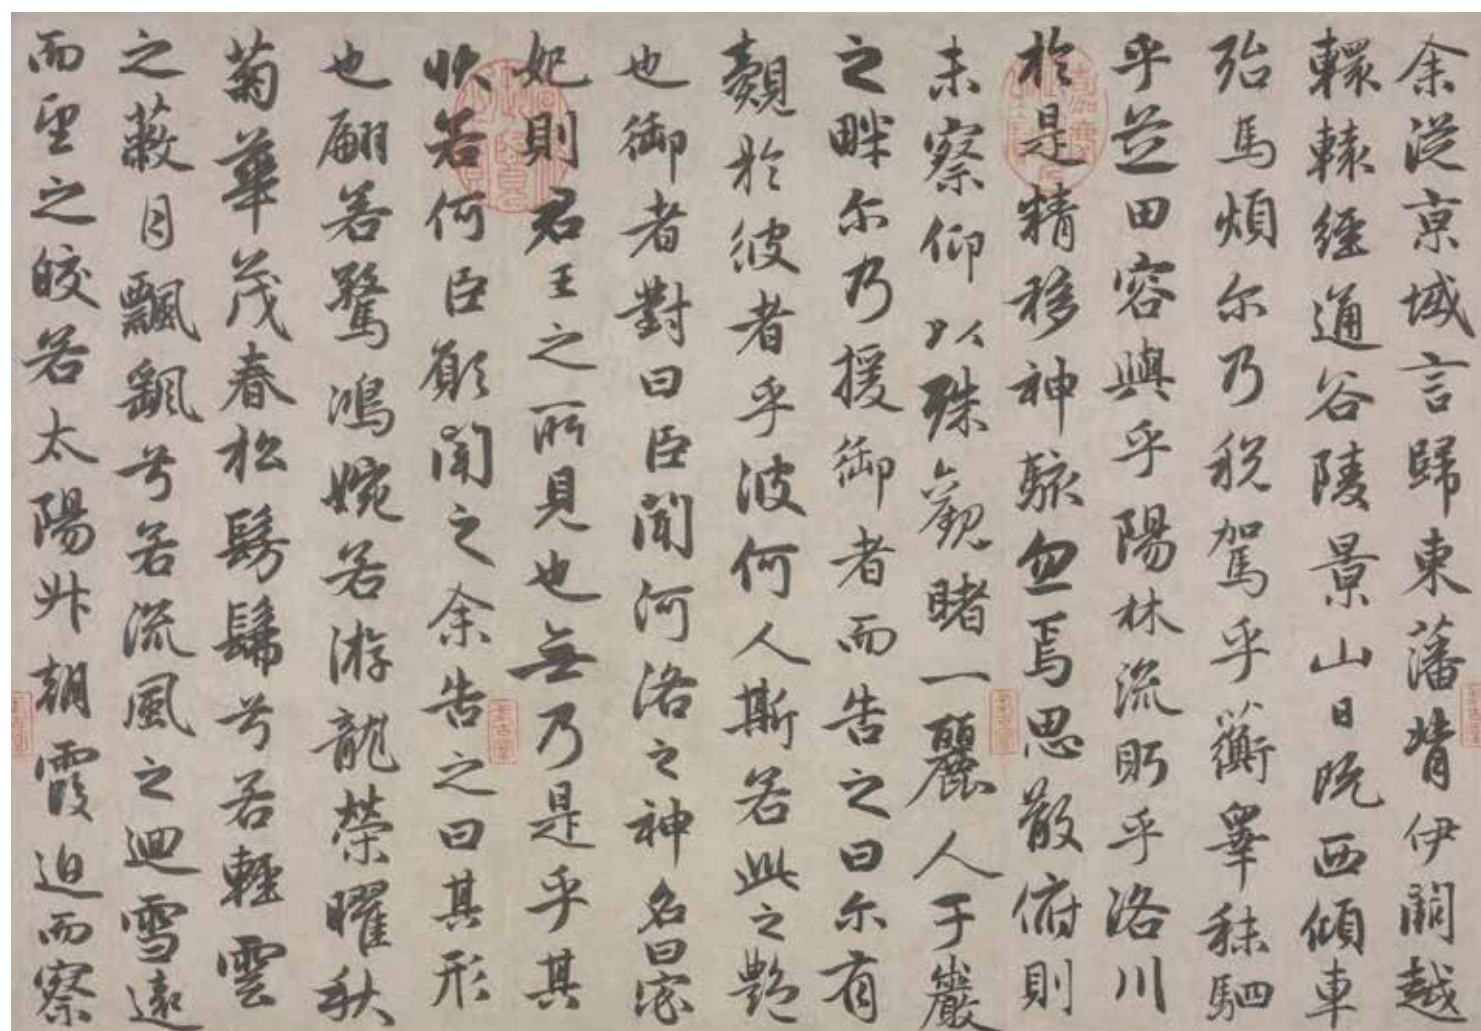 余從京域言歸東藩背伊闕越
轘轅經通谷陵景山日既西傾車
殆馬煩尔乃税駕乎蘅皋秣駟
乎芝田容與乎陽林流眄乎洛川
於是精移神駭忽焉思散俯則
未察仰以殊觀睹一麗人于巖
之畔尔乃援御者而告之曰尔有
覿於彼者乎彼何人斯若此之艷
也御者對曰臣聞河洛之神名曰宓
妃則君王之所見也無乃是乎其
狀若何臣願聞之余告之曰其形
也翩若驚鴻婉若游龍榮曜秋
菊華茂春松髣髴兮若輕雲
之蔽月飄飖兮若流風之迴雪遠
而望之皎若太陽升朝霞迫而察